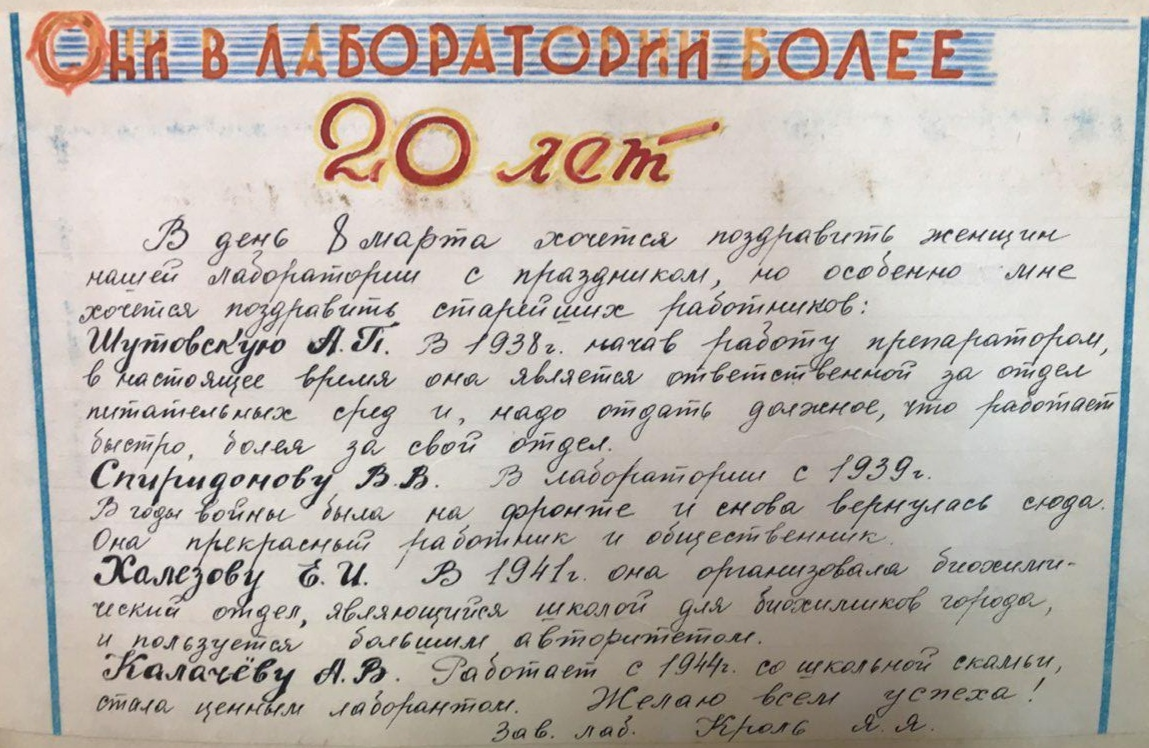 Они в лаборатории более
20 лет
В день 8 марта хочется поздравить женщин
нашей лаборатории с праздником, но особенно мне
хочется поздравить старейших работников:
Шутовскую А.П. В 1938г. начав работу препаратором,
в настоящее время она является ответственной за отдел
питательных сред и, надо отдать должное, что работает
быстро, болея за свой отдел.
Спиридонову В.В. В лаборатории с 1939г.
В годы войны была на фронте и снова вернулась сюда.
Она прекрасный работник и общественник.
Халезову Е.И. В 1941г. она организовала биохими-
ческий отдел, являющийся школой для биохимиков города,
и пользуется большим авторитетом.
Калачёву А.В. Работает с 1944г. со школьной скамьи,
стала ценным лаборантом. Желаю всем успеха!
Зав. лаб. Кроль Я.Я.